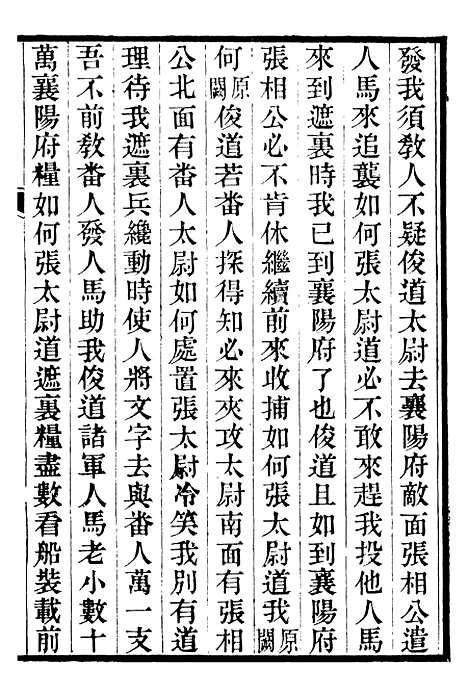 發我須敎人不疑俊道太尉去襄陽府敵面張相公遣
人馬來追襲如何張太尉道必不敢來趕我投他人馬
來到遮裏時我已到襄陽府了也俊道且如到襄陽府
張相公必不肯休繼續前來收捕如何張太尉道我原闕
何原闕俊道若番人探得知必來夾攻太尉南面有張相
公北面有番人太尉如何處置張太尉冷笑我別有道
理待我遮裏兵纔動時使人將文字去與番人萬一支
吾不前敎番人發人馬助我俊道諸軍人馬老小數十
萬襄陽府糧如何張太尉道遮裏糧盡數看船裝載前